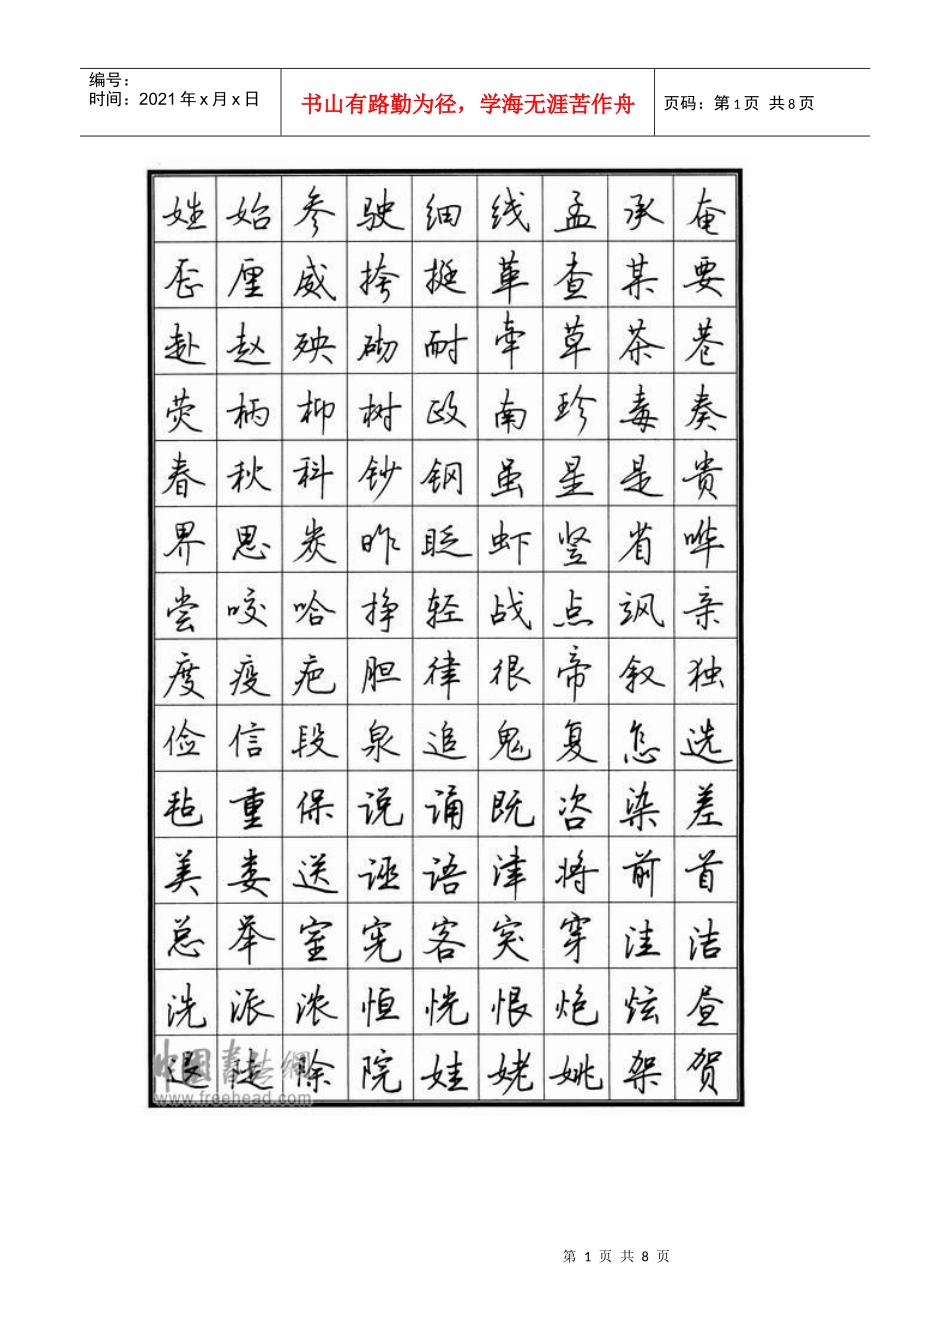 编号：
时间：2021年x月x日
书山有路勤为径，学海无涯苦作舟
页码：第1页 共8页
姓 始 参 驶 细 线 孟 承 奄
歪 厘 威 挎 挺 革 查 某 要
赴 赵 殃 砌 耐 牵 草 茶 巷
荧 柄 柳 树 政 南 珍 毒 奏
春 秋 科 钞 钢 虽 星 是 贵
界 思 炭 昨 眨 虾 竖 省 哗
尝 咬 哈 挣 轻 战 点 飒 亲
度 疫 疤 胆 律 很 帝 叙 独
俭 信 段 泉 追 鬼 复 怎 选
毡 重 保 说 诵 既 咨 染 差
美 娄 送 诬 语 津 将 前 首
总 举 室 宪 客 突 穿 洼 洁
洗 派 浓 恒 恍 恨 炮 炫 昼
退 陡 除 院 娃 姥 姚 架 贺
www.freehead.com
第 1 页 共 8 页